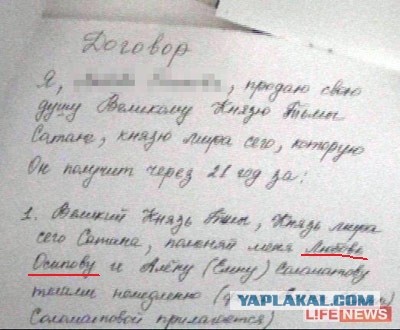 Договор
Я, , продаю свою
душу Великому Князю Тьмы
Сатане, князю мира сего, которую
Он получит через 21 год за:
1. Великий Князь Тьмы, Князь мира
сего Сатана, поменяй меня Любовь
Осипову и Алёну (Елену) Соломатову
телами немедленно
Соломатовой прилагается)
YAPLAKAL.COM
LIFENEWS